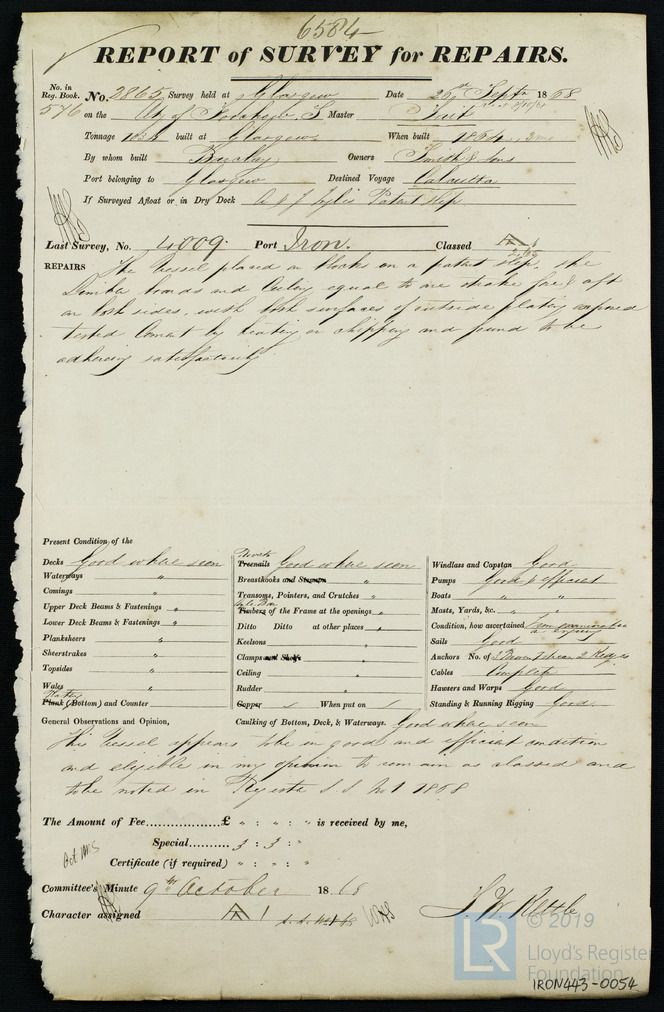 6584
REPORT of SURVEY for REPAIRS.
No. in
Reg. Book.
576
No. 2865 Survey held at Glasgow Date 26th Septr 1868
on the City of S Master
Tonnage built at Glasgow When built 1864
By whom built Owners Smith & Sons
Port belonging to Glasgow Destined Voyage Calcutta
If Surveyed Afloat or in Dry Dock A & J Patent slip
Last Survey, No. 4009. Port Iron. Classed A 1
REPAIRS The Vessel placed on blocks on a patent slip. the
boards and Ceiling equal to one strake fore & aft
on both sides, with both surfaces of outside plating exposed
tested Cement by beating or chipping and found to be
adhering satisfactorily
Present Condition of the
Decks Good where seen
Waterways "
Comings "
Upper Deck Beams & Fastenings "
Lower Deck Beams & Fastenings "
Planksheers "
Sheerstrakes "
Topsides "
Wales "
Plates
Plank (Bottom) and Counter
Rivets
Treenails Good where seen
Breasthooks and Stemson "
Transoms, Pointers, and Crutches "
Timbers of the Frame at the openings "
Ditto Ditto at other places "
Keelsons "
Clamps and Shelfs "
Ceiling "
Rudder "
Copper When put on
Windlass and Capstan Good
Pumps Good & efficient
Boats " "
Masts, Yards, &c. " "
Condition, how ascertained from examination
Sails Good
Anchors No. of 3 Bower 1 stream 2 Kedges
Cables Complete
Hawsers and Warps Good
Standing & Running Rigging Good
General Observations and Opinion, Caulking of Bottom, Deck, & Waterways. Good where seen
This Vessel appears to be in good and efficient condition
and eligible in my opinion to remain as classed and
to be noted in Register S.S. No 1 1868
The Amount of Fee £ " : " : " is received by me,
Special 3 : 3 : "
Certificate (if required) " : " : "
Committee's Minute 9th October 1868
Character assigned A 1 S.S. No 1 68
© 2019
LR Lloyd's Register
Foundation
IRON443-0054